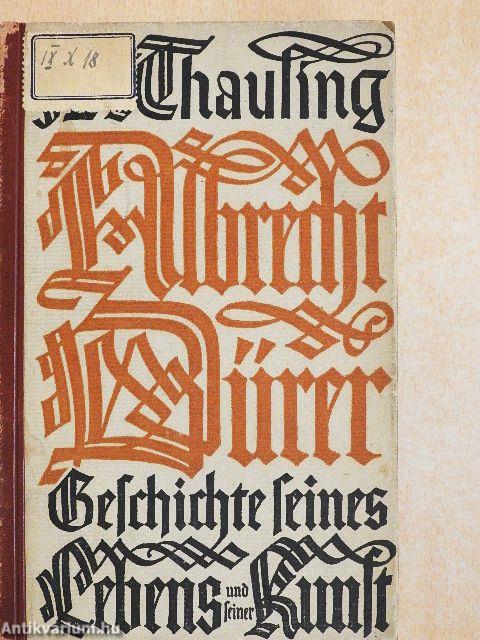 IX X 18
Thausing
Albrecht
Dürer
Geschichte seines
Lebens und seiner Kunst
Antikvarium.hu